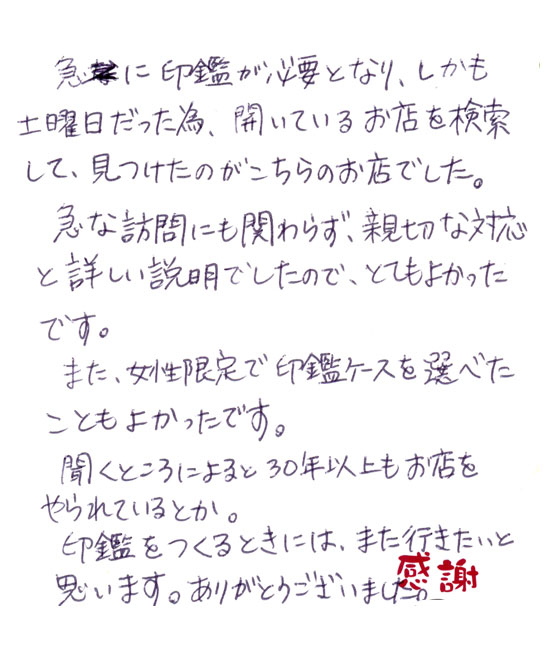 急に印鑑が必要となり、しかも
土曜日だった為、開いているお店を検索
して、見つけたのがこちらのお店でした。
急な訪問にも関わらず、親切な対応
と詳しい説明でしたので、とてもよかった
です。
また、女性限定で印鑑ケースを選べた
こともよかったです。
聞くところによると30年以上もお店を
やられているとか。
印鑑をつくるときには、また行きたいと
思います。ありがとうございました。
感謝